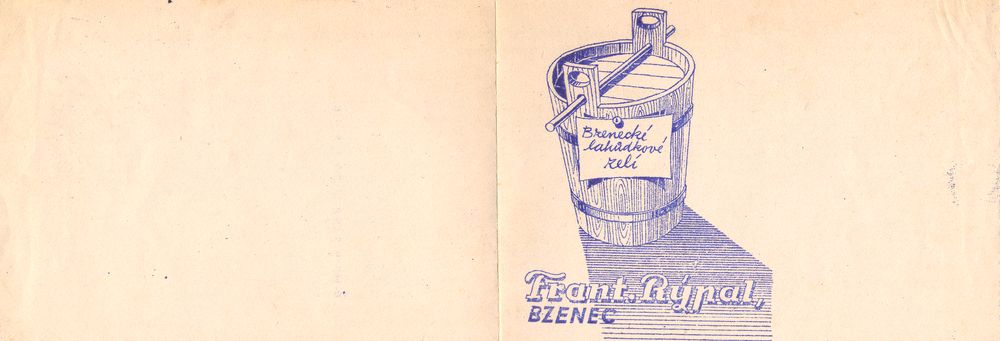 Bzenecké
lahůdkové
zelí
Frant. Rýpal,
BZENEC